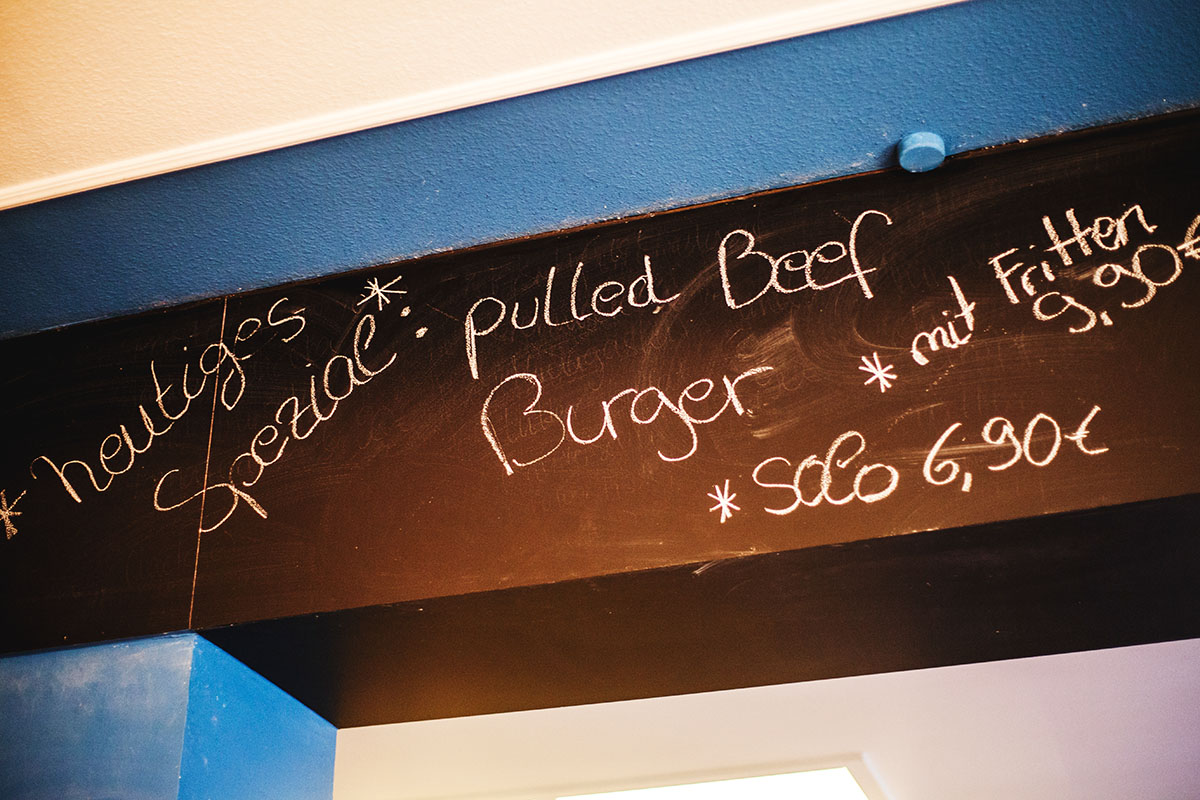 * heutiges
Spezial*:
pulled Beef
Burger
* mit Fritten
9,90€
* solo 6,90€